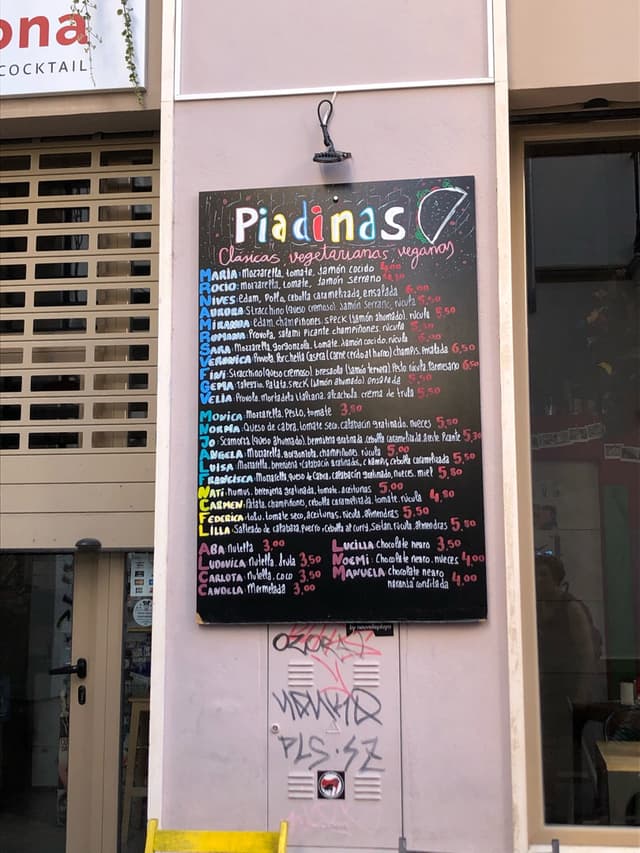 ona
COCKTAIL
Piadinas
Clásicas vegetarianas veganas
MARÍA: Mozzarella, tomate, Jamón cocido
ROCIO: Mozzarella, tomate, Jamón serrano
NIVES: Edam, Pollo, cebolla caramelizada, ensalada 6,00
AURORA: Stracchino (queso cremoso), Jamón Serrano, rúcula 5,50
MIRANDA: Edam, champiñones, SPECK (Jamón ahumado), rúcula 5,50
ROMANA: Provola, salami Picante champiñones, rúcula
SARA: Mozzarella, gorgonzola, tomate, Jamón cocido, rúcula
VERONICA: Provola, Porchetta casera (carne cerdo al horno) champis, ensalada 6,50
FINI: Stracchino (queso cremoso), bresaola (Jamón ternera) Pesto rúcula Parmesano 6,50
GEMA: Patata, SPECK (Jamón ahumado) ensalada 5,50
VELIA: Provola, Mortadela italiana, alcachofa, crema de trufa 5,50
MONICA: Mozzarella, Pesto, tomate 3,50
NORMA: Queso de cabra, tomate seco, calabacín gratinado, nueces 5,50
JO: Scamorza (queso ahumado), berenjena gratinada, cebolla caramelizada, aceite Picante 5,30
ANGELA: Mozzarella, gorgonzola, champiñones, rúcula 5,00
LUISA: Mozzarella, berenjena y calabacín gratinados, champis, cebolla caramelizada 5,50
FRANCISCA: Mozzarella, queso de Cabra, calabacín gratinado, nueces, miel 5,80
NATI: humus, berenjena gratinada, tomate, aceitunas 5,00
CARMEN: Patata, champiñones, cebolla caramelizada, tomate, rúcula 4,80
FEDERICA: tofu, tomate seco, aceitunas, rúcula, almendras 5,50
LILLA: Salteado de calabaza, puerro, cebolla al curry, Seitan, rúcula, almendras 5,80
ABA nutella 3,00
LUDOVICA nutella, fruta 3,50
CARLOTA nutella, coco 3,50
CANDELA Mermelada 3,00
LUCILLA chocolate negro 3,50
NOEMI: Chocolate negro, nueces 4,00
MANUELA chocolate negro
naranja confitada 4,00
PLS·SZ